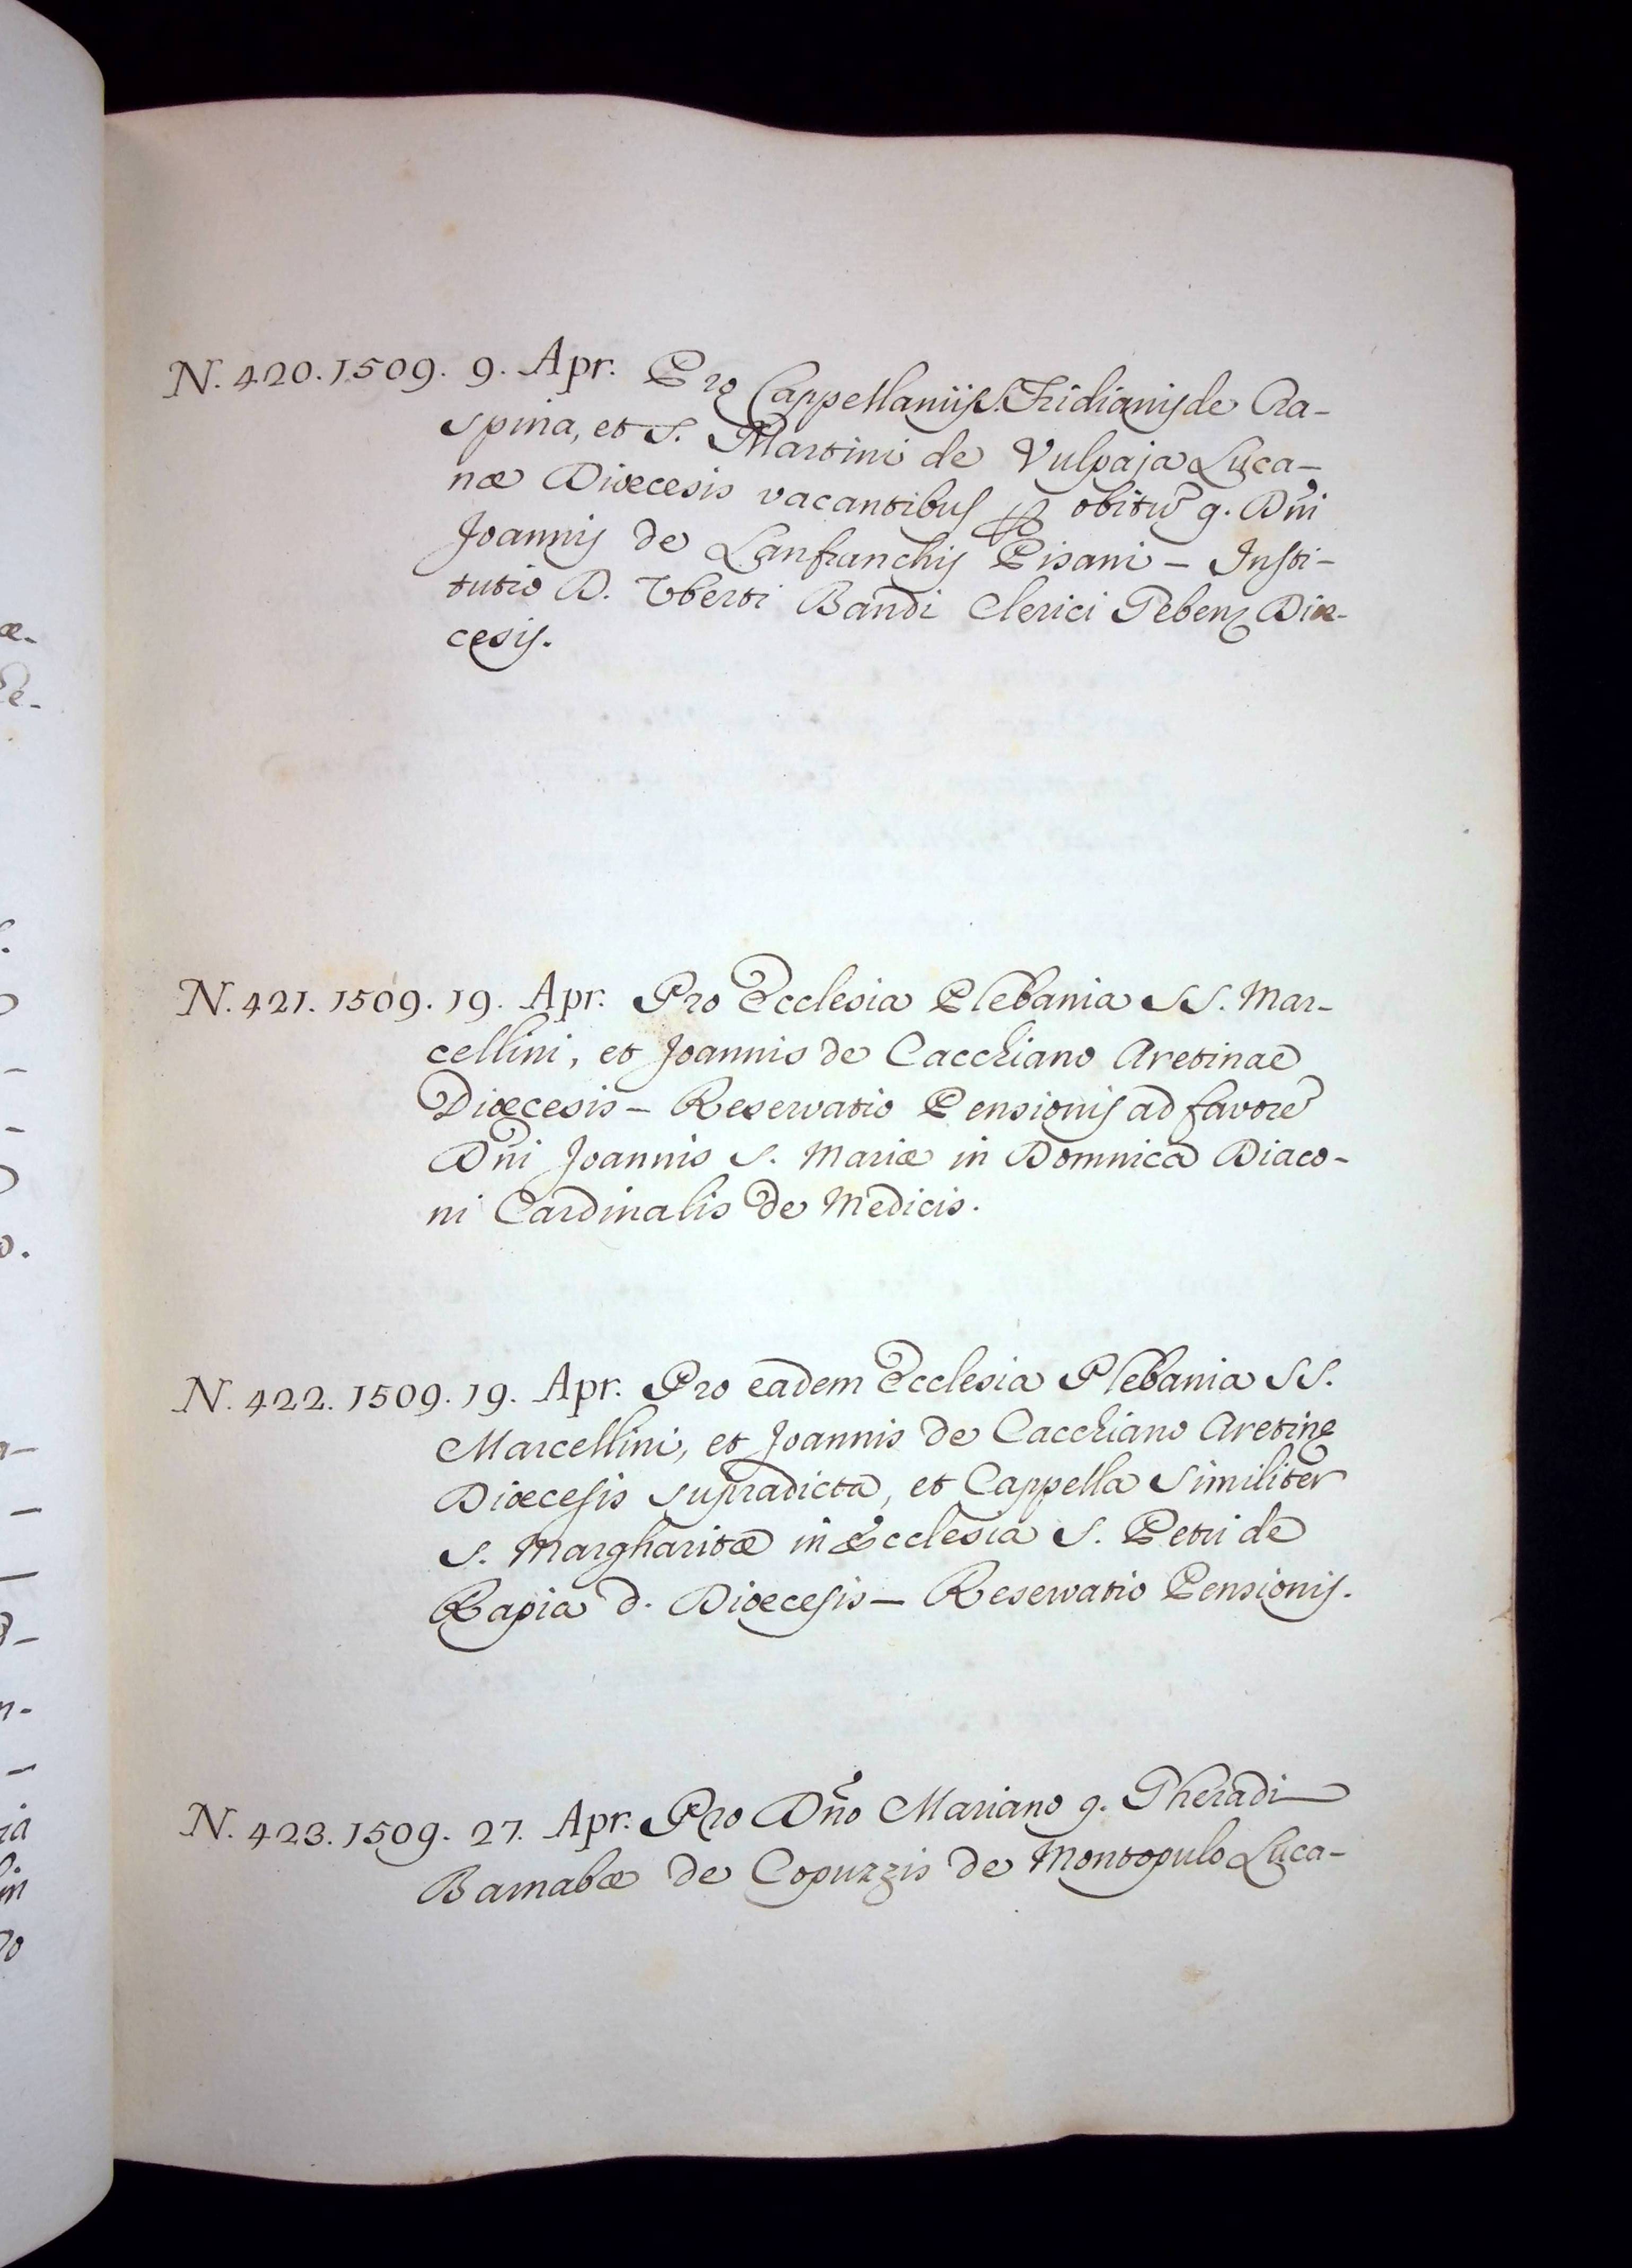 N. 420. 1509. 9. Apr. Pro Cappellaniis S. Fridianis de Cra-
spina, et S. Martini de Vulpaja Luca-
næ Diœcesis vacantibus p obitũ q. Dñi
Joannis de Lanfranchis Pisani – Insti-
tutio D. Uberti Bandi Clerici Pebenꝫ Diœ-
cesis.
N. 421. 1509. 19. Apr. Pro Ecclesia Plebania SS. Mar-
cellini, et Joannis de Cacchiano Aretinae
Diœcesis – Reservatio Pensionis ad favorẽ
Dñi Joannis S. Mariæ in Domnica Diaco-
ni Cardinalis de Medicis.
N. 422. 1509. 19. Apr. Pro eadem Ecclesia Plebania SS.
Marcellini, et Joannis de Cacchiano Aretinę
Diœcesis supradicta, et Cappella similiter
S. Margharitæ in Ecclesia S. Petri de
Rapia d. Diœcesis – Reservatio Pensionis.
N. 423. 1509. 27. Apr. Pro Dño Mariano q. Gheradi
Barnabæ de Copuzzis de Montopulo Luca-